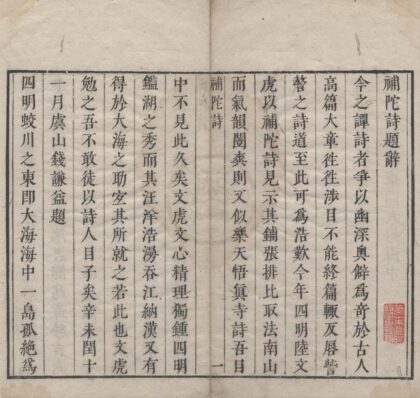 補陀詩題辭
今之譚詩者爭以幽深奧僻為奇於古人
高篇大章往往涉目不能終篇輒反唇訾
謷之詩道至此可為浩歎今年四明陸文
虎以補陀詩見示其鋪張排比取法南山
而氣韻閎爽則又似樂天悟真寺詩吾目
補陀詩
一
中不見此久矣文虎文心精理獨鍾四明
鑑湖之秀而其汪洋浩湯吞江納漢又有
得於大海之助宜其所就之若此也文虎
勉之吾不敢徒以詩人目子矣辛未閏十
一月虞山錢謙益題
四明蛟川之東即大海海中一島孤絕為